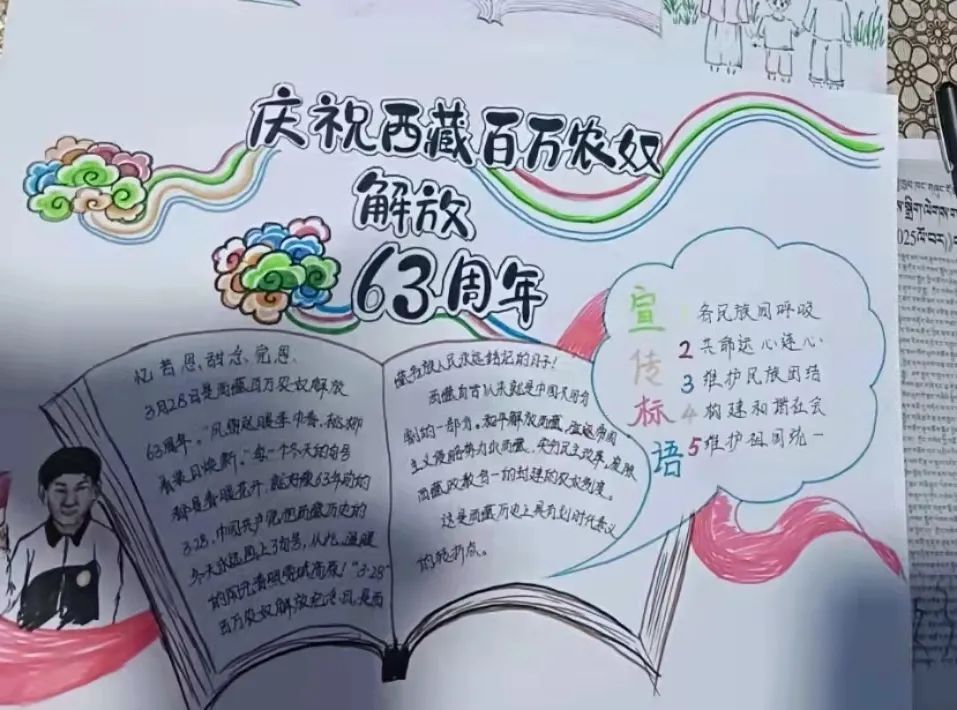 庆祝西藏百万农奴
解放
63周年
忆苦恩、甜念、完恩、
3月28日是西藏百万农奴解放
63周年。"风朝送暖季
着装日焕新。"每一个冬天的句号
都是春暖花开,就好像63年前的
3·28,中国共产党把西藏历史的
今天永远画上了句号,从此,温暖
的阳光普照雪域高原!"3·28"
百万农奴解放纪念日,是西
藏各族人民永远铭记的日子!
西藏自古以来就是中国不可分
割的一部分。和平解放西藏,驱逐帝国
主义侵略势力出西藏,实行民主改革,废除
西藏政教合一的封建的农奴制度。
这是西藏历史上具有划时代意义
的转折点。
宣传标语
1 各民族同呼吸
2 共命运心连心
3 维护民族团结
4 构建和谐社会
5 维护祖国统一